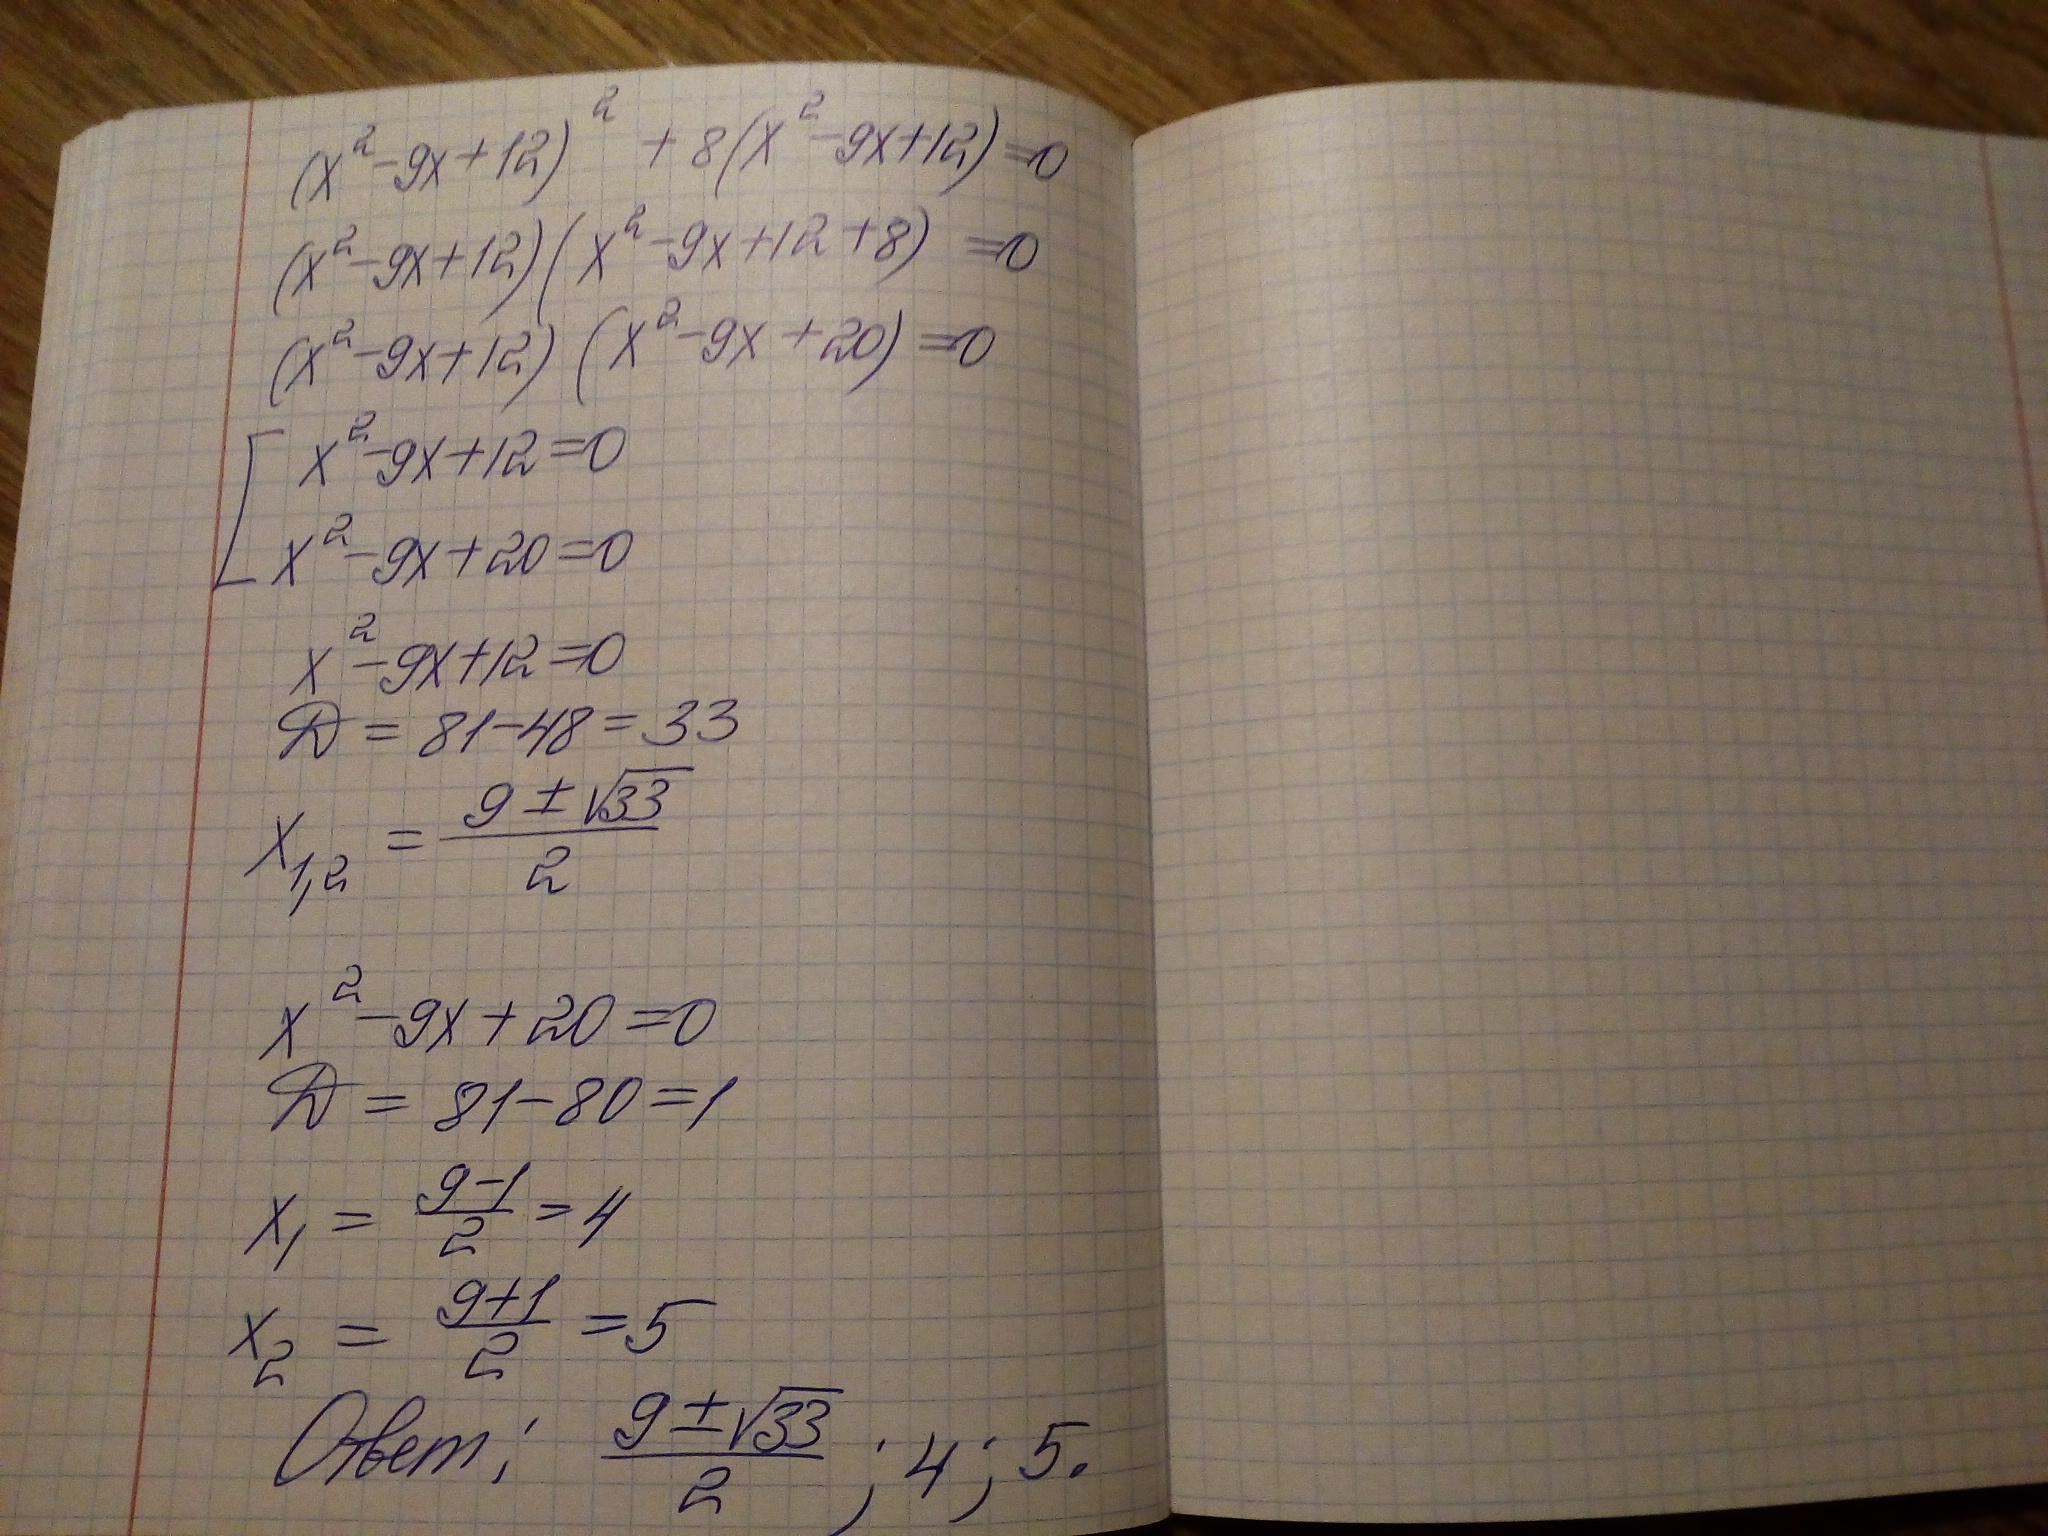 (x²-9x+12)² +8(x²-9x+12)=0
(x²-9x+12)(x²-9x+12+8)=0
(x²-9x+12)(x²-9x+20)=0
[x²-9x+12=0
x²-9x+20=0
x²-9x+12=0
D = 81-48=33
x₁,₂ = (9±√33)/2
x²-9x+20=0
D = 81-80=1
x₁ = (9-1)/2 =4
x₂ = (9+1)/2 =5
Ответ: (9±√33)/2; 4; 5.